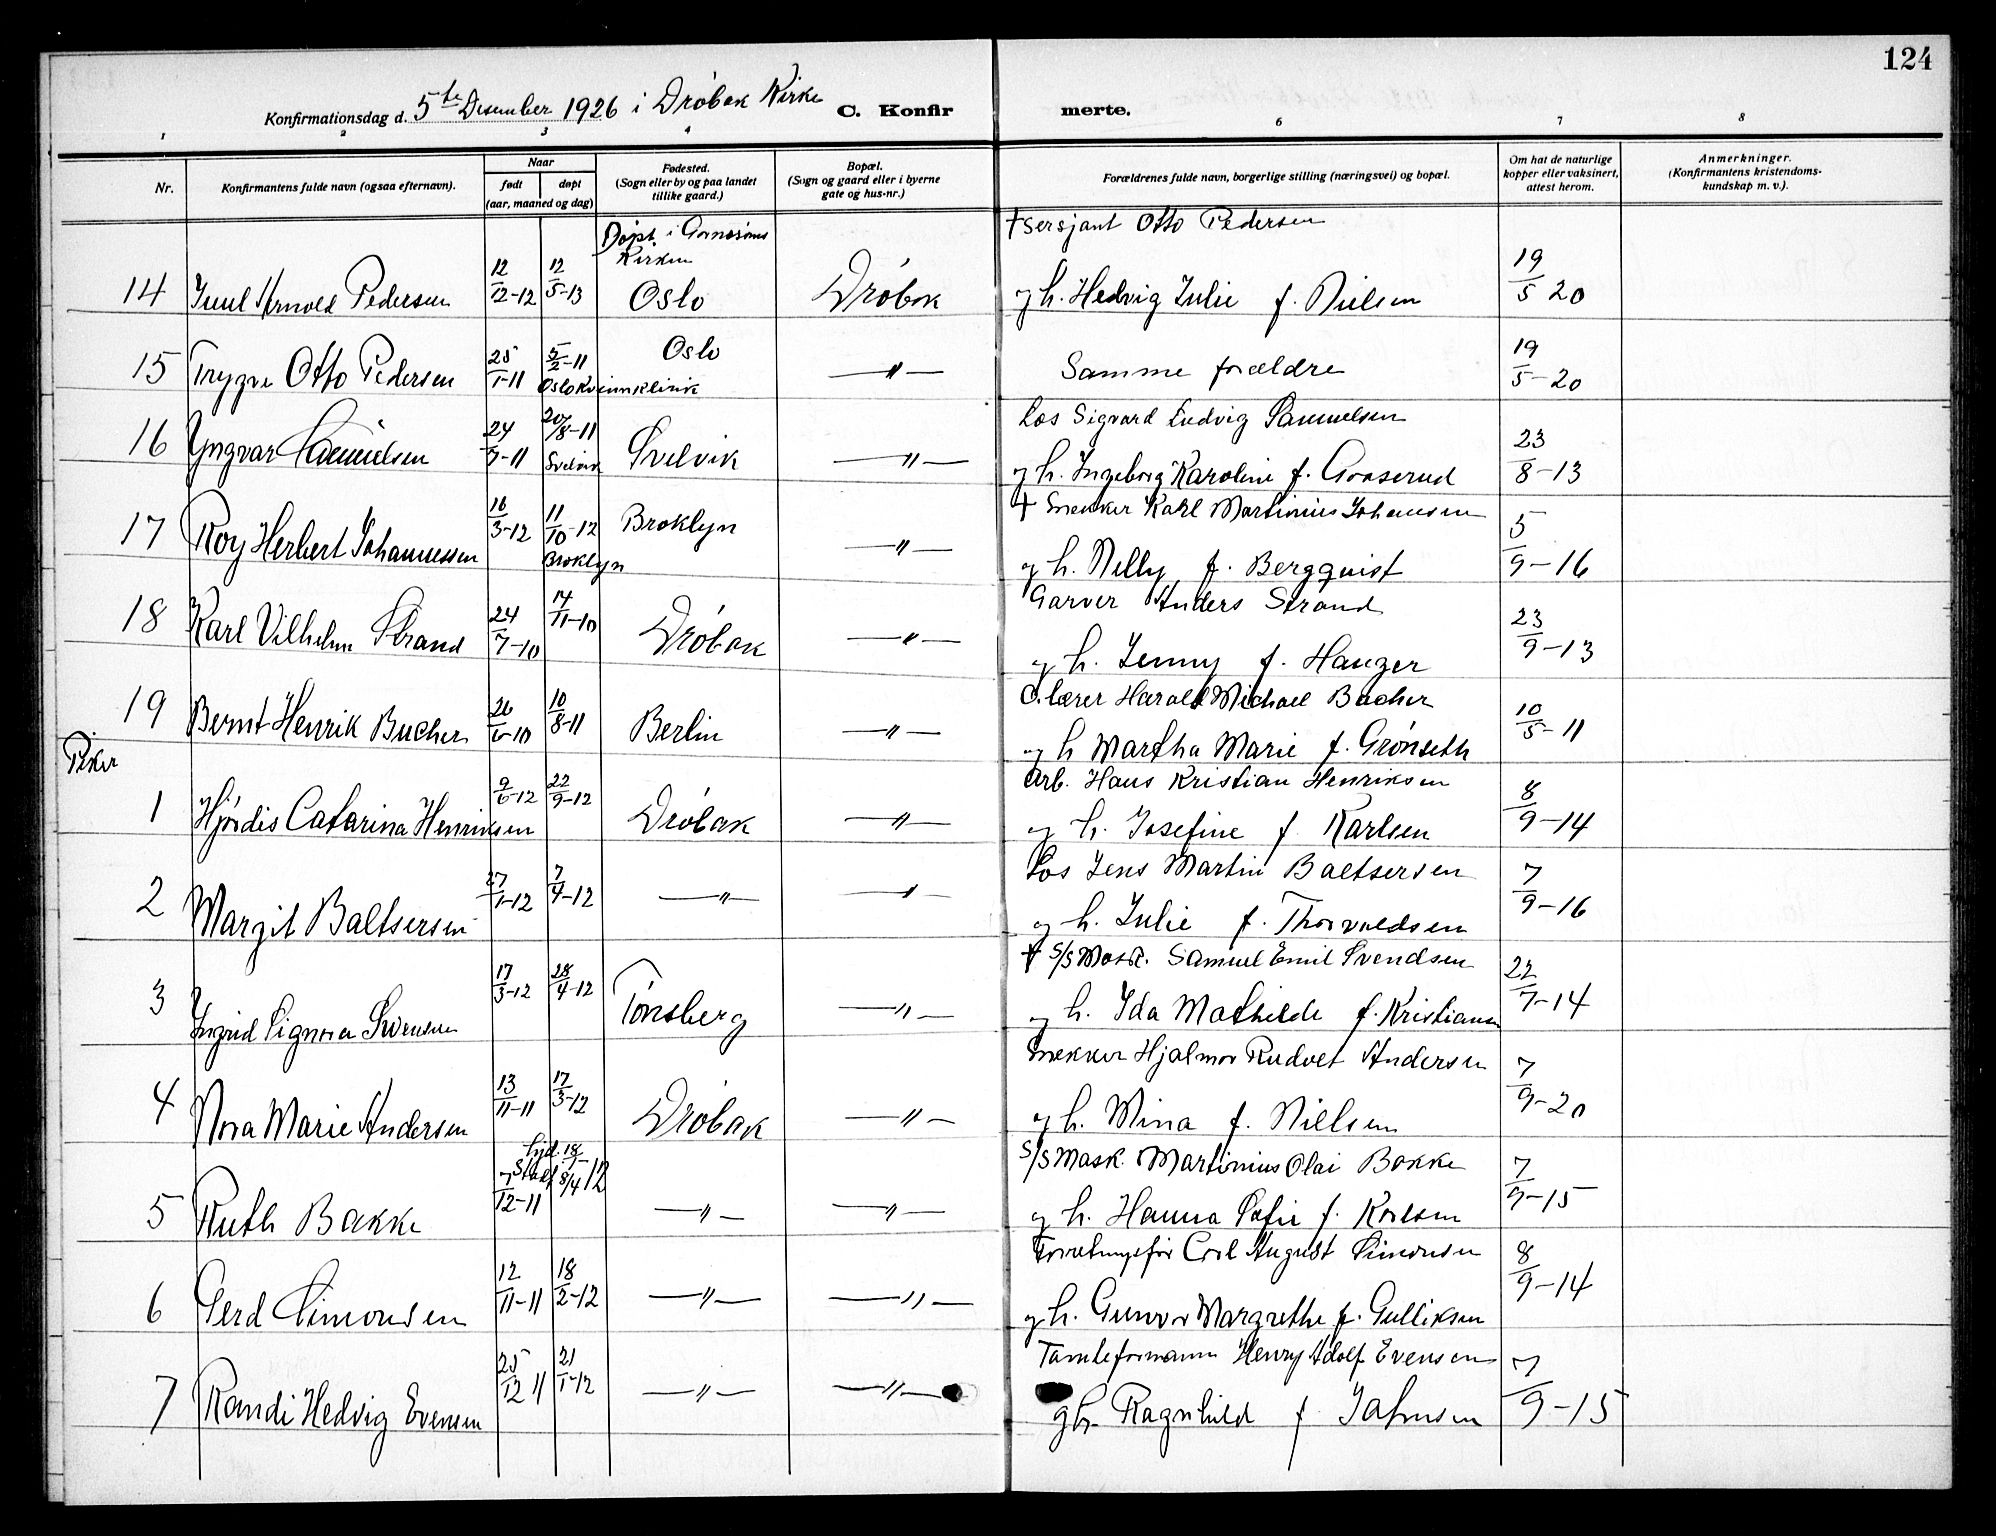 124
Konfirmationsdag d. 5te Desember 1926 i Drøbak Kirke
C. Konfirmerte.
1 2 3 4 6 7 8
Nr.
Konfirmantens fulde navn (ogsaa efternavn).
Naar
født døpt
(aar, maaned og dag)
Fødested.
(Sogn eller by og paa landet
tillike gaard.)
Bopæl.
(Sogn og gaard eller i byerne
gate og hus-nr.)
Forældrenes fulde navn, borgerlige stilling (næringsvei) og bopæl.
Om hat de naturlige
kopper eller vaksinert,
attest herom.
Anmerkninger.
(Konfirmantens kristendoms-
kundskap m. v.).
Døpt i
Kirken
† Sersjant Otto Pedersen
14 Juul Arnold Pedersen 12/12-12 12/5-13 Oslo Drøbak og h. Hedvig Julie f. Nielsen 19/5 20
15 Trygve Otto Pedersen 25/1-11 5/2-11 Oslo Kvinneklinik Oslo —"— Samme forældre 19/5-20
Los Sigvard Ludvig Samuelsen
16 Yngvar Samuelsen 24/7-11 20/8-11 Svelvik Svelvik —"— og h. Ingeborg Karoline f. Graserud 23/8-13
† Snekker Karl Martinius Johansen
17 Roy Herbert Johannessen 16/3-12 11/10-12 Broklyn Broklyn —"— og h. Nelly f. Bergquist 5/9-16
Garver Anders Strand
18 Karl Vilhelm Strand 24/7-10 14/11-10 Drøbak —"— og h. Jenny f. Hauger 23/9-13
O. lærer Harald Michael Bucher
19 Bernt Henrik Bucher 26/6-10 10/8-11 Berlin —"— og h Martha Marie f. Grønseth 10/5-11
Piker
Arb. Hans Kristian Henriksen
1 Hjørdis Catarina Henriksen 9/6-12 22/9-12 Drøbak —"— og h. Josefine f. Karlsen 8/9-14
Los Jens Martin Baltsersen
2 Margit Baltsersen 27/1-12 7/4-12 —"— —"— og h. Julie f. Thorvaldsen 7/9-16
† S/S Mask. Samuel Emil Svendsen
3 Ingrid Signora Svensen 17/3-12 28/4-12 Tønsberg —"— og h. Ida Mathilde f. Kristiansen 22/7-14
Snekker Hjalmar Rudolf Andersen
4 Nora Marie Andersen 13/11-11 17/3-12 Drøbak —"— og h. Mina f. Nielsen 7/9-20
S/S Mask. Martinius Olai Bakke
5 Ruth Bakke 7/12-11 hjd. 18/1 Stadf. 8/4 12 —"— —"— og h. Hanna Sofie f. Karlsen 7/9-15
Forretningsfør Carl August Simonsen
6 Gerd Simonsen 12/11-11 18/2-12 —"— —"— og h. Gunvor Margrethe f. Gulliksen 8/9-14
Tomteformann Henry Adolf Evensen
7 Randi Hedvig Evensen 25/12 11 21/1-12 —"— —"— og h. Ragnhild f. Jahnsen 7/9-15